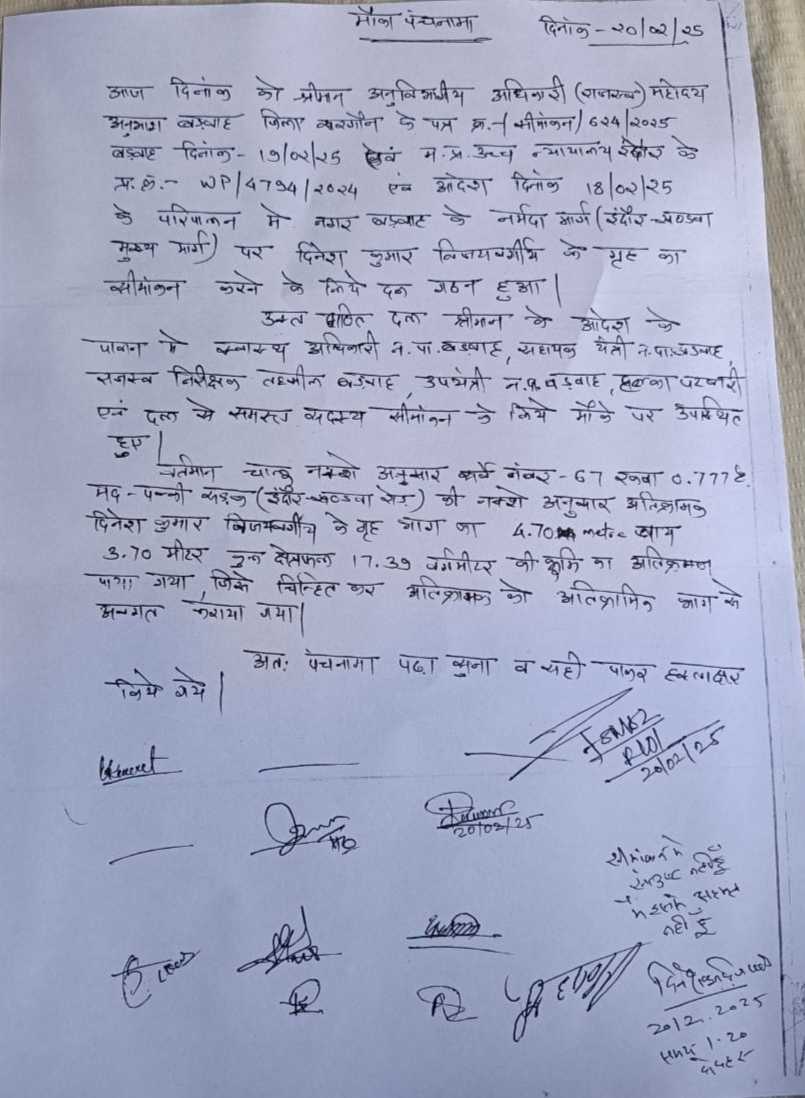 मौका पंचनामा
दिनांक - २०/०२/२५
आज दिनांक को श्रीमान अनुविभागीय अधिकारी (राजस्व) महोदय
अनुभाग बड़वाह जिला खरगौन के पत्र क्र.-/सीमांकन/624/2025
बड़वाह दिनांक - 19/02/25 एवं म.प्र. उच्च न्यायालय इंदौर के
प्र.क्र.- WP/4794/2024 एवं आदेश दिनांक 18/02/25
के परिपालन मे नगर बड़वाह के नर्मदा मार्ग (इंदौर-खण्डवा
मुख्य मार्ग) पर दिनेश कुमार विजयवर्गीय के गृह का
सीमांकन करने के लिये दल गठन हुआ |
उक्त गठित दल श्रीमान के आदेश के
पालन मे स्वास्थ्य अधिकारी न.पा. बड़वाह, सहायक यंत्री न.पा. बड़वाह,
राजस्व निरीक्षक तहसील बड़वाह, उपयंत्री न.पा. बड़वाह, हल्का पटवारी
एवं दल के समस्त सदस्य सीमांकन के लिये मौके पर उपस्थित
हुए |
वर्तमान चालू नक्शे अनुसार सर्वे नंबर - 67 रकबा 0.777 हे.
मद - पक्की सड़क (इंदौर-खण्डवा रोड) की नक्शे अनुसार अतिक्रामक
दिनेश कुमार विजयवर्गीय के गृह भाग का 4.70 metre
3.70 मीटर कुल क्षेत्रफल 17.39 वर्गमीटर की भूमि का अतिक्रमण
पाया गया, जिसे चिन्हित कर अतिक्रामक को अतिक्रामित भाग से
अवगत कराया गया |
अतः पंचनामा पढ़ा सुना व सही पाकर हस्ताक्षर
किये गये |
20/02/25
20/02/25
सीमांकन से
संतुष्ट नहीं हूँ
मै इससे सहमत
नहीं हूँ
20/2.2025
समय 1.20
दोपहर